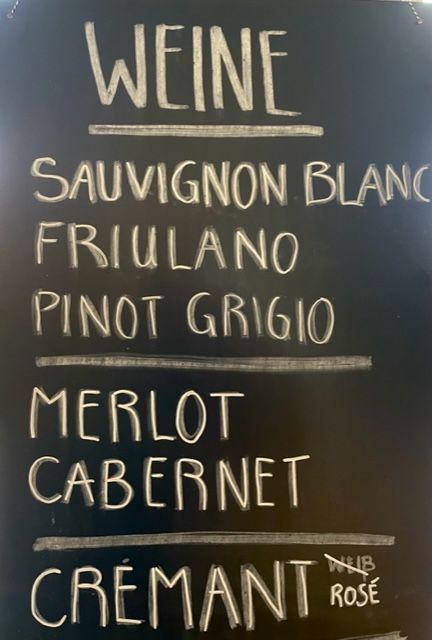 WEINE
SAUVIGNON BLANC
FRIULANO
PINOT GRIGIO
MERLOT
CABERNET
CRÉMANT WEIß
ROSÉ